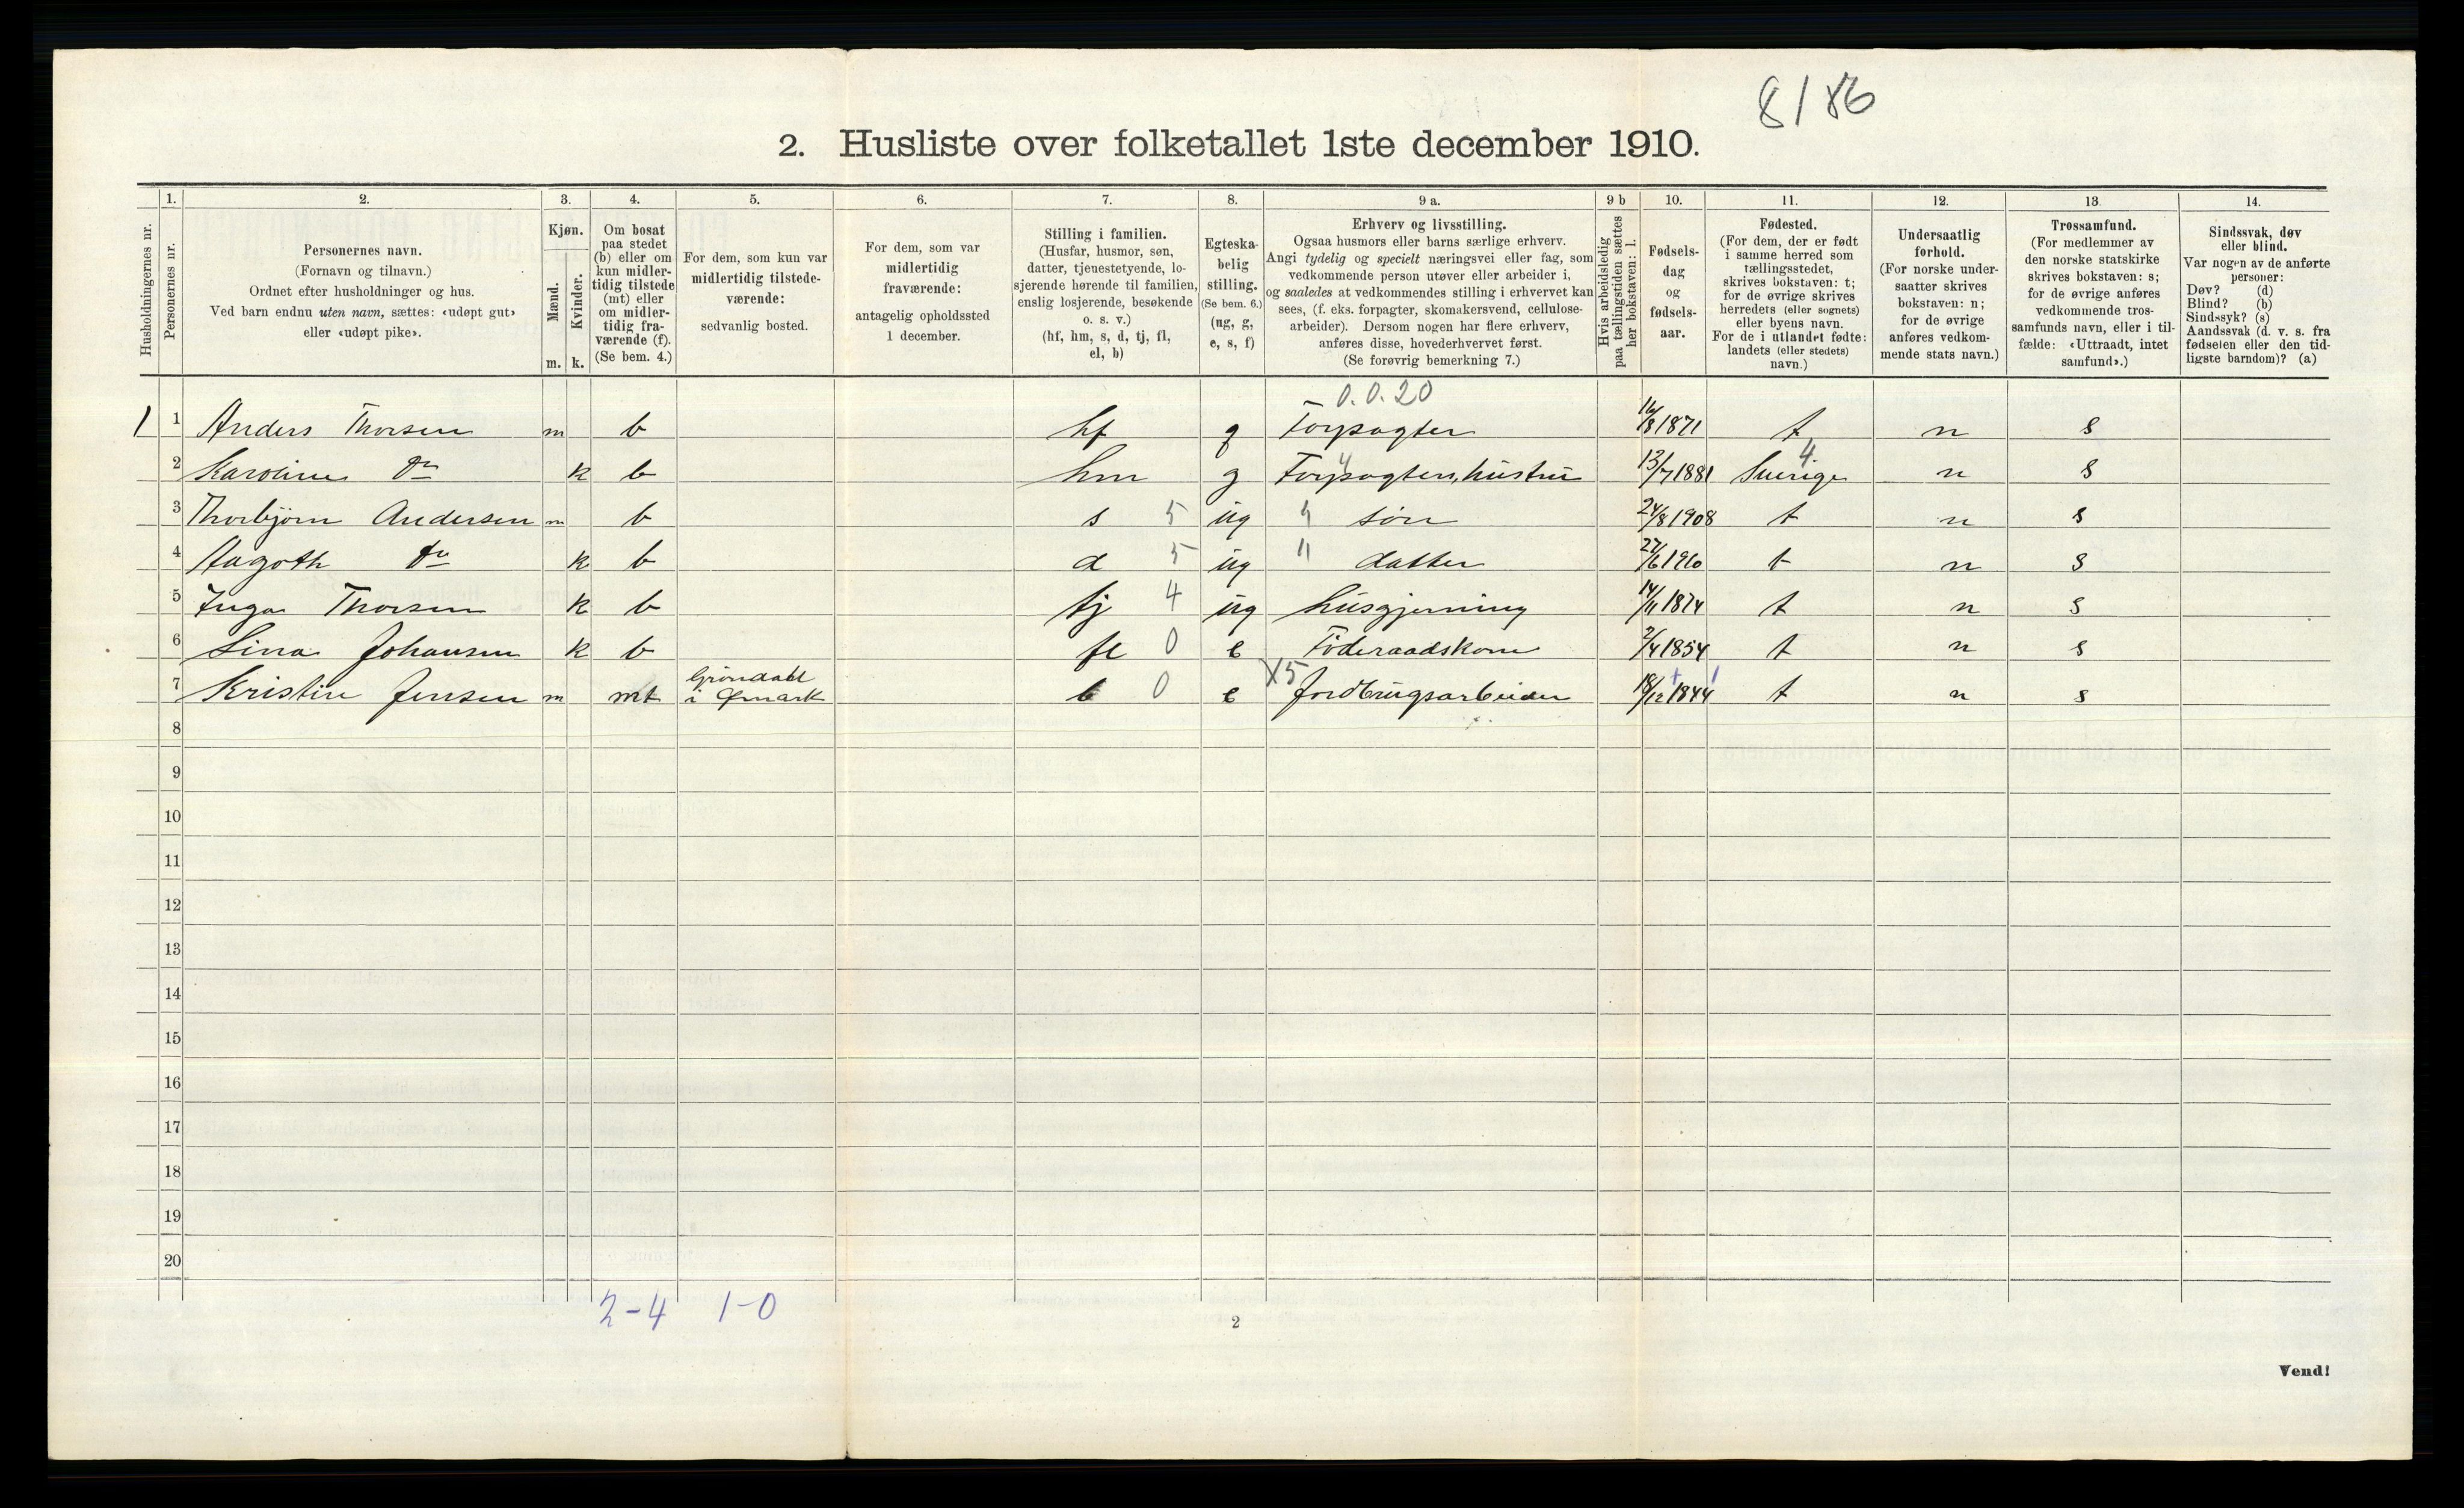 8/86
2. Husliste over folketallet 1ste december 1910.
Husholdningernes nr.
1.
Personernes nr.
2.
Personernes navn.
(Fornavn og tilnavn.)
Ordnet efter husholdninger og hus.
Ved barn endnu uten navn, sættes: «udøpt gut»
eller «udøpt pike».
3.
Kjøn.
Mænd.
Kvinder.
m. k.
4.
Om bosat
paa stedet
(b) eller om
kun midler-
tidig tilstede
(mt) eller
om midler-
tidig fra-
værende (f).
(Se bem. 4.)
5.
For dem, som kun var
midlertidig tilstede-
værende:
sedvanlig bosted.
6.
For dem, som var
midlertidig
fraværende:
antagelig opholdssted
1 december.
7.
Stilling i familien.
(Husfar, husmor, søn,
datter, tjenestetyende, lo-
sjerende hørende til familien,
enslig losjerende, besøkende
o. s. v.)
(hf, hm, s, d, tj, fl,
el, b)
8.
Egteska-
belig
stilling.
(Se bem. 6.)
(ug, g,
e, s, f)
9 a.
Erhverv og livsstilling.
Ogsaa husmors eller barns særlige erhverv.
Angi tydelig og specielt næringsvei eller fag, som
vedkommende person utøver eller arbeider i,
og saaledes at vedkommendes stilling i erhvervet kan
sees, (f. eks. forpagter, skomakersvend, cellulose-
arbeider). Dersom nogen har flere erhverv,
anføres disse, hovederhvervet først.
(Se forøvrig bemerkning 7.)
9 b
Hvis arbeidsledig
paa tællingstiden sættes
her bokstaven: l.
10.
Fødsels-
dag
og
fødsels-
aar.
11.
Fødested.
(For dem, der er født
i samme herred som
tællingsstedet,
skrives bokstaven: t;
for de øvrige skrives
herredets (eller sognets)
eller byens navn.
For de i utlandet fødte:
landets (eller stedets)
navn.)
12.
Undersaatlig
forhold.
(For norske under-
saatter skrives
bokstaven: n;
for de øvrige
anføres vedkom-
mende stats navn.)
13.
Trossamfund.
(For medlemmer av
den norske statskirke
skrives bokstaven: s;
for de øvrige anføres
vedkommende tros-
samfunds navn, eller i til-
fælde: «Uttraadt, intet
samfund».)
14.
Sindssvak, døv
eller blind.
Var nogen av de anførte
personer:
Døv? (d)
Blind? (b)
Sindssyk? (s)
Aandssvak (d. v. s. fra
fødselen eller den tid-
ligste barndom)? (a)
0.0.20
1 1 Anders Thorsen m b hf g Forpagter 16/8 1871 t n s
2 Karoline do k b hm g Forpagters hustru 13/7 1881 Sverige 4 n s
3 Thorbjørn Andersen m b s 5 ug " søn 24/8 1908 t n s
4 Aagoth do k b d 5 ug " datter 27/6 1910 t n s
5 Inga Thorsen k b tj 4 ug husgjerning 14/11 1874 t n s
6 Lina Johansen k b fl 0 e Föderaadskone 2/4 1854 t n s
7 Kristin Jensen m mt Gröndahl i Ømark b 0 e X5 Jordbrugsarbeider 18/12 1844 t n s
8
9
10
11
12
13
14
15
16
17
18
19
20
2-4 1-0
2
Vend!